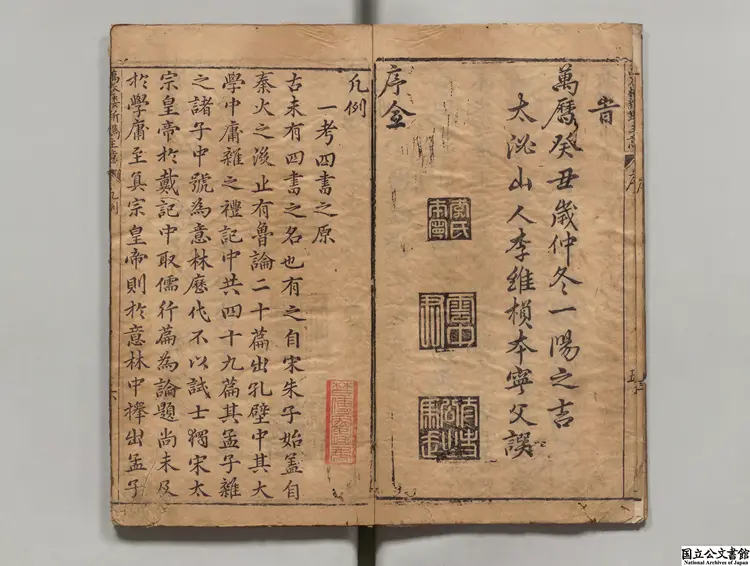 旹
萬曆癸丑歲仲冬一陽之吉
太泌山人李維楨本寧父譔
序全
凡例
一考四書之原
古未有四書之名也有之自宋朱子始蓋自
秦火之後止有魯論二十篇出孔壁中其大
學中庸雜之禮記中共四十九篇其孟子雜
之諸子中號為意林歷代不以試士獨宋太
宗皇帝於戴記中取儒行篇為論題尚未及
於學庸至真宗皇帝則於意林中擇出孟子
国立公文書館
National Archives of Japan